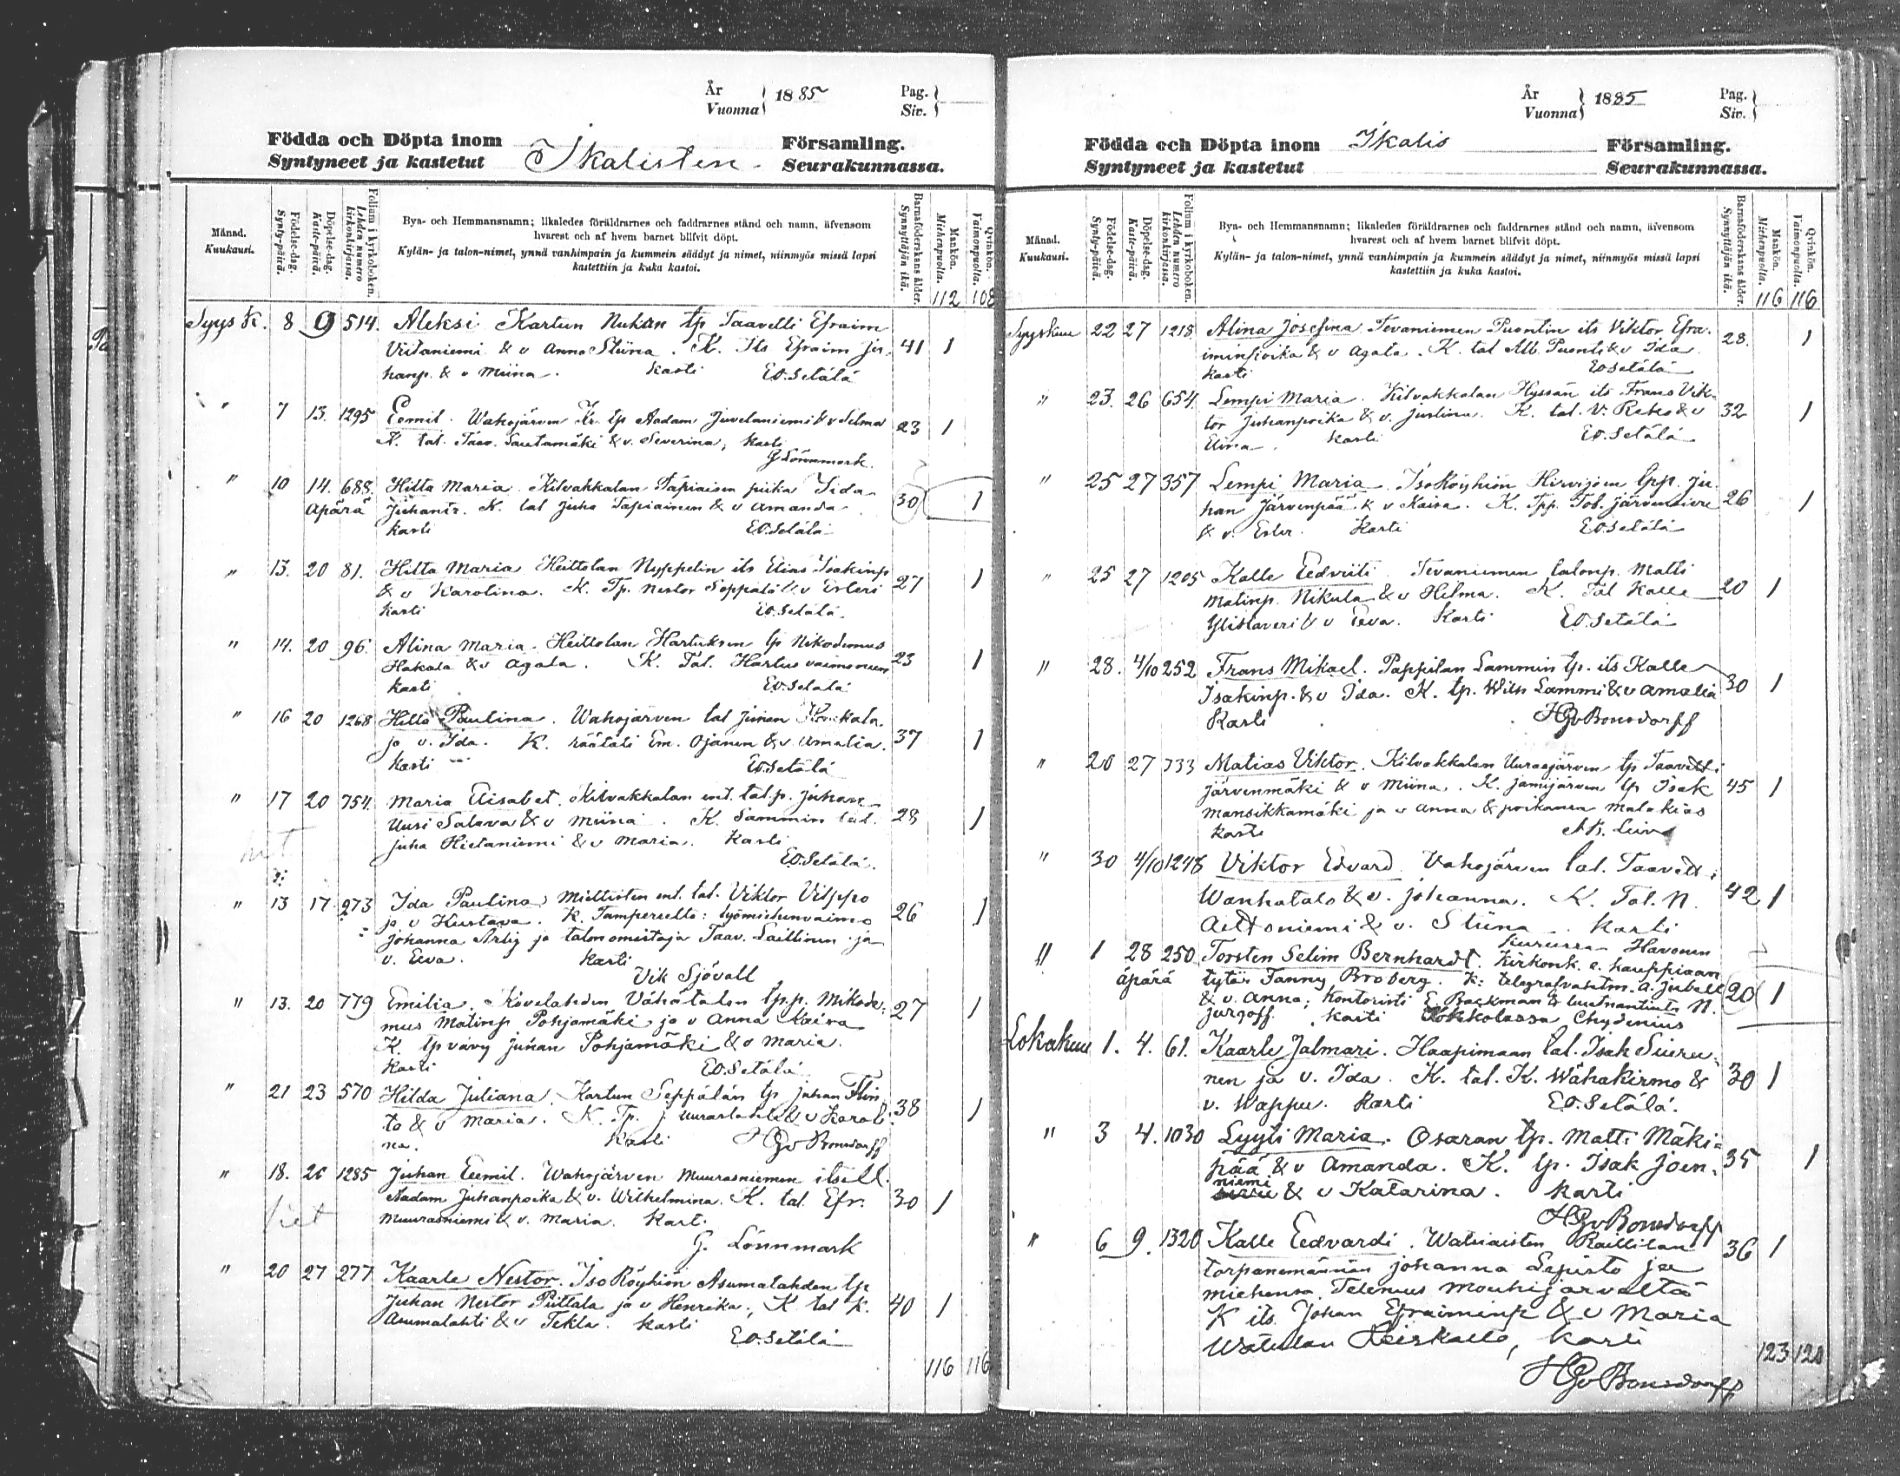 År
Vuonna } 1885 Pag.
Siv. }
Födda och Döpta inom Ikalisten Församling.
Syntyneet ja kastetut Seurakunnassa.
Månad.
Kuukausi.
Födelse-dag.
Synty-päivä.
Döpelse-dag.
Kaste-päivä.
Folium i kyrkoboken.
Lehden numero kirkonkirjassa.
Bya- och Hemmansnamn; likaledes föräldrarnes och faddrarnes stånd och namn, äfvensom
hvarest och af hvem barnet blifvit döpt.
Kylän- ja talon-nimet, ynnä vanhimpain ja kummein säädyt ja nimet, niinmyös missä lapsi
kastettiin ja kuka kastoi.
Barnaföderskans ålder.
Synnyttäjän ikä.
Mankön.
Miehenpuolta.
Qvinkön.
Vaimonpuolta.
112 108
Syysk. 8 9 514. Aleksi Kartun Nukan tp Taavetti Efraim
Viitaniemi & v Anna Stiina. K. Its Efraim Ju- 41 1
hanp. & v Miina. kasti E.O. Setälä
" 7 13. 1295 Eemil. Wahojärven Kr. tp Aadam Juvelaniemi & v Selma 23 1
K. tal. Taav. Sautamäki & v. Severina, kasti
G Lönnmark.
" 10 14. 688. Hilta Maria. Kilvakkalan Tapiaisen piika Iida 30 1
äpärä Juhantr. K. tal Juha Tapiainen & v Amanda
kasti E.O. Setälä
" 13. 20 81. Hilta Maria Heittolan Nyppelin its Elias Isakinp 27 1
& v Karolina. K. Tp. Nestor Seppälä & v Esteri
kasti E.O. Setälä.
" 14. 20 96. Alina Maria. Heittolan Hartuksen tp Nikodemus 23 1
Hakala & v Agata. K. Tal. Hartus vaimoneen
kasti E.O. Setälä
" 16 20 1268 Hilta Paulina. Wahojärven tal Juhan
ja v. Ida. K. räätäli Em. Ojanen & v Amalia. 37 1
kasti E.O. Setälä
" 17 20 754. Maria Elisabet. Kilvakkalan ent. tal.p. Juhan
Uusi Salava & v Miina. K. Sammin tal. 28 1
Juha Hietaniemi & v Maria. kasti
E.O. Setälä.
" 13 17 273 Ida Paulina, Miettisten ent. tal. Viktor Vilppo
ja v Kustava. K. Tampereelta: työmiehenvaimo 26 1
Johanna Artig ja talon omistaja Taav. Saillinen ja
v. Eeva. kasti
Vik Sjövall
" 13. 20 779 Emilia. Kovelahden Vähätalon tp.p. Nikode- 27 1
mus Matinp Pohjamäki ja v Anna Kaisa
K. tp vävy Juhan Pohjamäki & v Maria.
kasti E.O. Setälä
" 21 23 570 Hilda Juliana. Kartun Seppälän tp Juhan Flin
to & v Maria. K. Tp. J & v Karoli- 38 1
na. kasti HGvBonsdorff
" 18. 20 1285 Juhan Eemil. Wahojärven Muurasniemen itsell.
Aadam Juhanpoika & v. Wilhelmina. K. tal. Efr. 30 1
Muurasniemi & v. Maria. kast.
G. Lönnmark
" 20 27 277 Kaarle Nestor. Iso Röyhiön Asumalahden tp
Juhan Nestor Piittala ja v Henrika, K tal K. 40 1
Asumalahti & v Tekla. kasti
E.O. Setälä
116 116
År
Vuonna } 1885 Pag.
Siv. }
Födda och Döpta inom Ikalis Församling.
Syntyneet ja kastetut Seurakunnassa.
Månad.
Kuukausi.
Födelse-dag.
Synty-päivä.
Döpelse-dag.
Kaste-päivä.
Folium i kyrkoboken.
Lehden numero kirkonkirjassa.
Bya- och Hemmansnamn; likaledes föräldrarnes och faddrarnes stånd och namn, äfvensom
hvarest och af hvem barnet blifvit döpt.
Kylän- ja talon-nimet, ynnä vanhimpain ja kummein säädyt ja nimet, niinmyös missä lapsi
kastettiin ja kuka kastoi.
Barnaföderskans ålder.
Synnyttäjän ikä.
Mankön.
Miehenpuolta.
Qvinkön.
Vaimonpuolta.
116 116
Syyskuu 22 27 1218 Alina Josefina Tevaniemen Puontin its Viktor Efra- 28. 1
iminpoika & v Agata. K. tal Alb. Puonti & v Ida.
kasti E.O. Setälä
" 23. 26 654. Lempi Maria. Kilvakkalan Hyssän its Frans Vik- 32 1
tor Juhanpoika & v. Justina. K. tal. V. & v
Elina. kasti E.O. Setälä
" 25 27 357 Lempi Maria Iso Röyhiön Hirvijoen tpp. Ju- 26 1
han Järvenpää & v Kaisa. K. Tpp. Tob. Järvensivu
& v. Ester. kasti E.O. Setälä
" 25 27 1205 Kalle Eedvriti Tevaniemen talonp. Matti 20 1
Matinp. Nikula & v Helma. K. Tal Kalle
Ylistaveri & v Eeva. kasti E.O. Setälä
" 28. 4/10 252 Frans Mikael. Pappilan Sammin tp. its Kalle 30 1
Isakinp. & v Ida. K. tp. Wilh Lammi & v Amalia
kasti HGvBonsdorff
" 20 27 733 Matias Viktor. Kilvakkalan Uurasjärven tp Taavetti
Järvenmäki & v Miina. K. Jämijärven tp Isak 45 1
Mansikkamäki ja v Anna & poikansa Malakias
kasti
" 30 4/10 1248 Viktor Edvard Vahojärven tal. Taavetti
Wanhatalo & v. Johanna. K. Tal. N. 42 1
Aittoniemi & v. Stiina. kasti
Havonen
" 1 28 250. Torsten Selim Bernhardt. Kirkonk. e. kauppiaan
äpärä tytär Fanny Broberg. K: A. Jubell 20 1
& v. Anna; kontoristi E Backman & luutnantint. N.
Jurgoff. kasti Kokkolassa Chydenius
Lokakuu 1. 4. 61. Kaarle Jalmari. Haapimaan tal. Isak Siuru-
nen ja v. Ida. K. tal. K. Wähäkirmo & 30 1
v. Wappu. kasti E.O. Setälä.
" 3 4. 1030 Lyyti Maria. Osaran tp. Matti Mäki-
pää & v Amanda. K. tp. Isak Joen- 35 1
niemi & v Katarina. kasti
HGvBonsdorff
" 6 9. 1320 Kalle Eedvardi. Watiaisten Raillilan 36 1
torpanemännän Johanna Lepistö ja
miehensä. Telenius Mouhijärveltä
K its. Johan Efraiminp & v Maria
Watulan Leiskallo, kasti
HGvBonsdorff
123 120